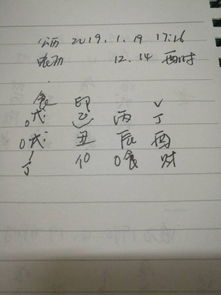 公历 2019.1.19 17:16
农历 12.14 酉时
食 印
戊 乙 丙 丁
戌 丑 辰 酉
伤 食 财